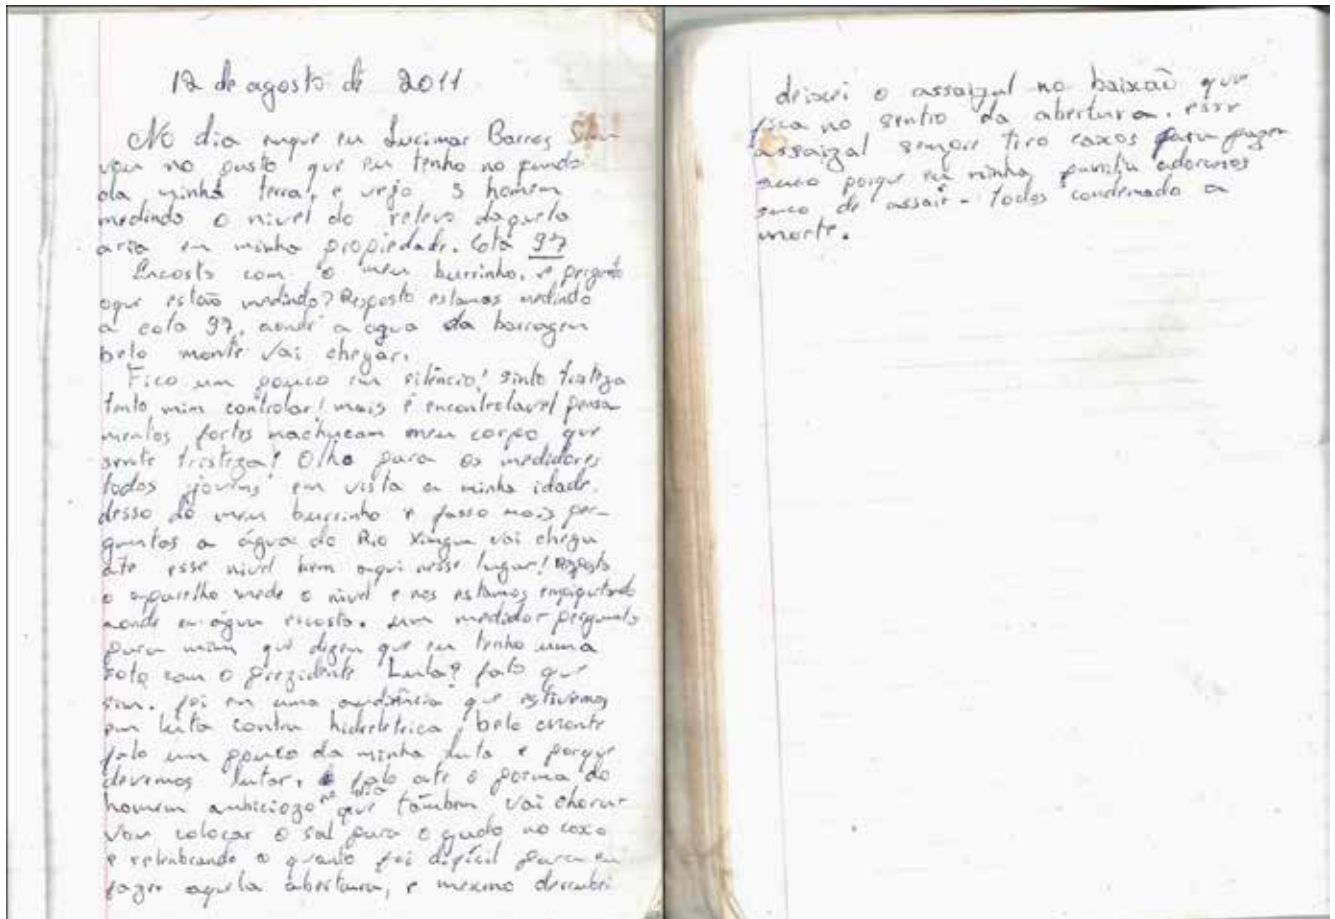 12 de agosto de 2011
No dia enque eu Lucimar Barros Silva
vou no pasto que eu tenho no fundo
da minha terra, e vejo 3 homem
medindo o nivel do relevo daquela
aria em minha propiedade. Cota 97
Encosto com o meu burrinho, e pergunto
oque estão medindo? Resposto estamos medindo
a cota 97, aonde a agua da barragem
belo monte vai chegar.
Fico um pouco em silêncio! sinto tristeza
tento mim controlar! mais é encontrolavel pensa
mentos fortes machucam meu corpo que
sente tristeza! Olho para os medidores
todos jovens em vista a minha idade.
desso do meu burrinho e fasso mais per-
guntas a água do Rio Xingu vai chega
ate esse nivel bem aqui nesse lugar! Resposto
o aparelho mede o nivel e nos estamos empiquetando
aonde en água encosta. um medidor pergunta
para mim que dizem que eu tenho uma
foto com o prezidente Lula? falo que
sim. foi en uma audiência que estivemos
em luta contra hidreletrica belo monte
falo um pouco da minha luta e porque
devemos lutar, falo ate o poema do
homem anbiciozo no dia que também vai chorar
vou colocar o sal para o gado no coxo
e relenbrando o quanto foi difícil para eu
fazer aquela abertura, e mesmo derrubei
deixei o assaizal no baixão que
fica no sentro da abertura. esse
assaizal sempre tiro caxos para fazer
suco porque eu minha familia adoramos
suco de assaí - todos condenado a
morte.